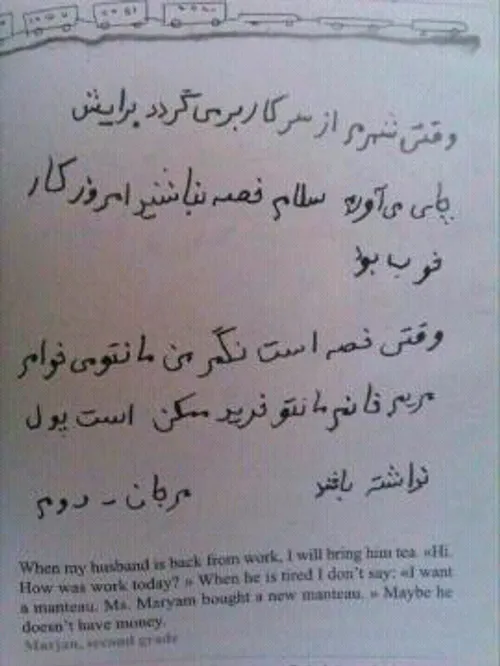 وقتی شهرم از سر کار بر می گردد برایش
چای می آورم سلام خسه نباشید امروز کار
خوب بود
وقتی خسه است نگم من مانتو می خوام
مریم خانم مانتو خرید ممکن است پول
نداشته باشد
مرجان - دوم
When my husband is back from work, I will bring him tea. «Hi.
How was work today? » When he is tired I don't say: «I want
a manteau. Ms. Maryam bought a new manteau. » Maybe he
doesn't have money.
Marjan, second grade